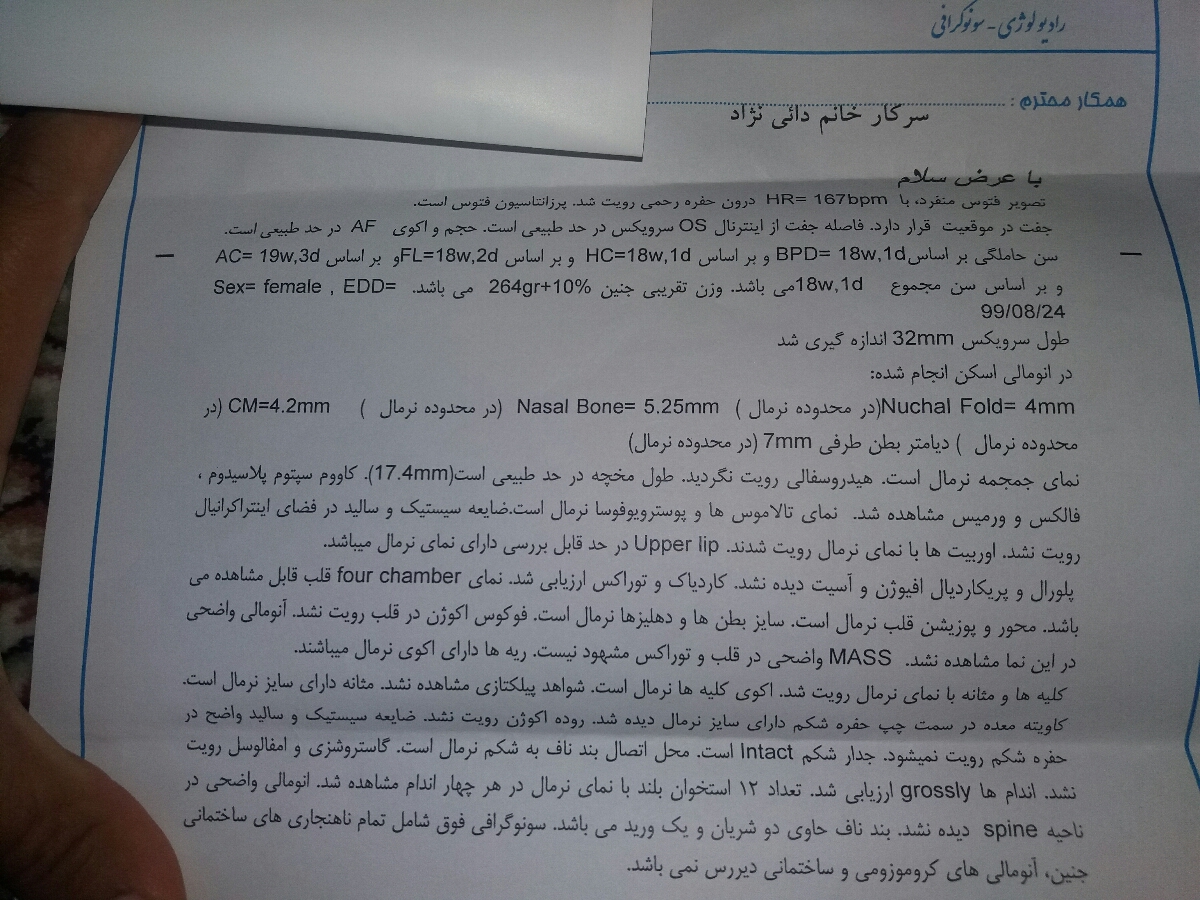 رادیولوژی - سونوگرافی
همکار محترم :
سرکار خانم دائی نژاد
با عرض سلام
تصویر فتوس منفرد، با HR= 167bpm درون حفره رحمی رویت شد. پرزانتاسیون فتوس است.
جفت در موقعیت قرار دارد. فاصله جفت از اینترنال OS سرویکس در حد طبیعی است. حجم و اکوی AF در حد طبیعی است.
سن حاملگی بر اساس BPD= 18w,1d و بر اساس HC=18w,1d و بر اساس FL=18w,2d و بر اساس AC= 19w,3d
و بر اساس سن مجموع 18w,1d می باشد. وزن تقریبی جنین 264gr+10% می باشد. Sex= female , EDD=
99/08/24
طول سرویکس 32mm اندازه گیری شد
در انومالی اسکن انجام شده:
Nuchal Fold= 4mm(در محدوده نرمال ) Nasal Bone= 5.25mm (در محدوده نرمال ) CM=4.2mm (در
محدوده نرمال ) دیامتر بطن طرفی 7mm (در محدوده نرمال)
نمای جمجمه نرمال است. هیدروسفالی رویت نگردید. طول مخچه در حد طبیعی است(17.4mm). کاووم سپتوم پلاسیدوم ،
فالکس و ورمیس مشاهده شد. نمای تالاموس ها و پوسترویوفوسا نرمال است.ضایعه سیستیک و سالید در فضای اینتراکرانیال
رویت نشد. اوربیت ها با نمای نرمال رویت شدند. Upper lip در حد قابل بررسی دارای نمای نرمال میباشد.
پلورال و پریکاردیال افیوژن و آسیت دیده نشد. کاردیاک و توراکس ارزیابی شد. نمای four chamber قلب قابل مشاهده می
باشد. محور و پوزیشن قلب نرمال است. سایز بطن ها و دهلیزها نرمال است. فوکوس اکوژن در قلب رویت نشد. آنومالی واضحی
در این نما مشاهده نشد. MASS واضحی در قلب و توراکس مشهود نیست. ریه ها دارای اکوی نرمال میباشند.
کلیه ها و مثانه با نمای نرمال رویت شد. اکوی کلیه ها نرمال است. شواهد پیلکتازی مشاهده نشد. مثانه دارای سایز نرمال است.
کاویته معده در سمت چپ حفره شکم دارای سایز نرمال دیده شد. روده اکوژن رویت نشد. ضایعه سیستیک و سالید واضح در
حفره شکم رویت نمیشود. جدار شکم Intact است. محل اتصال بند ناف به شکم نرمال است. گاستروشزی و امفالوسل رویت
نشد. اندام ها grossly ارزیابی شد. تعداد ۱۲ استخوان بلند با نمای نرمال در هر چهار اندام مشاهده شد. انومالی واضحی در
ناحیه spine دیده نشد. بند ناف حاوی دو شریان و یک ورید می باشد. سونوگرافی فوق شامل تمام ناهنجاری های ساختمانی
جنین، آنومالی های کروموزومی و ساختمانی دیررس نمی باشد.